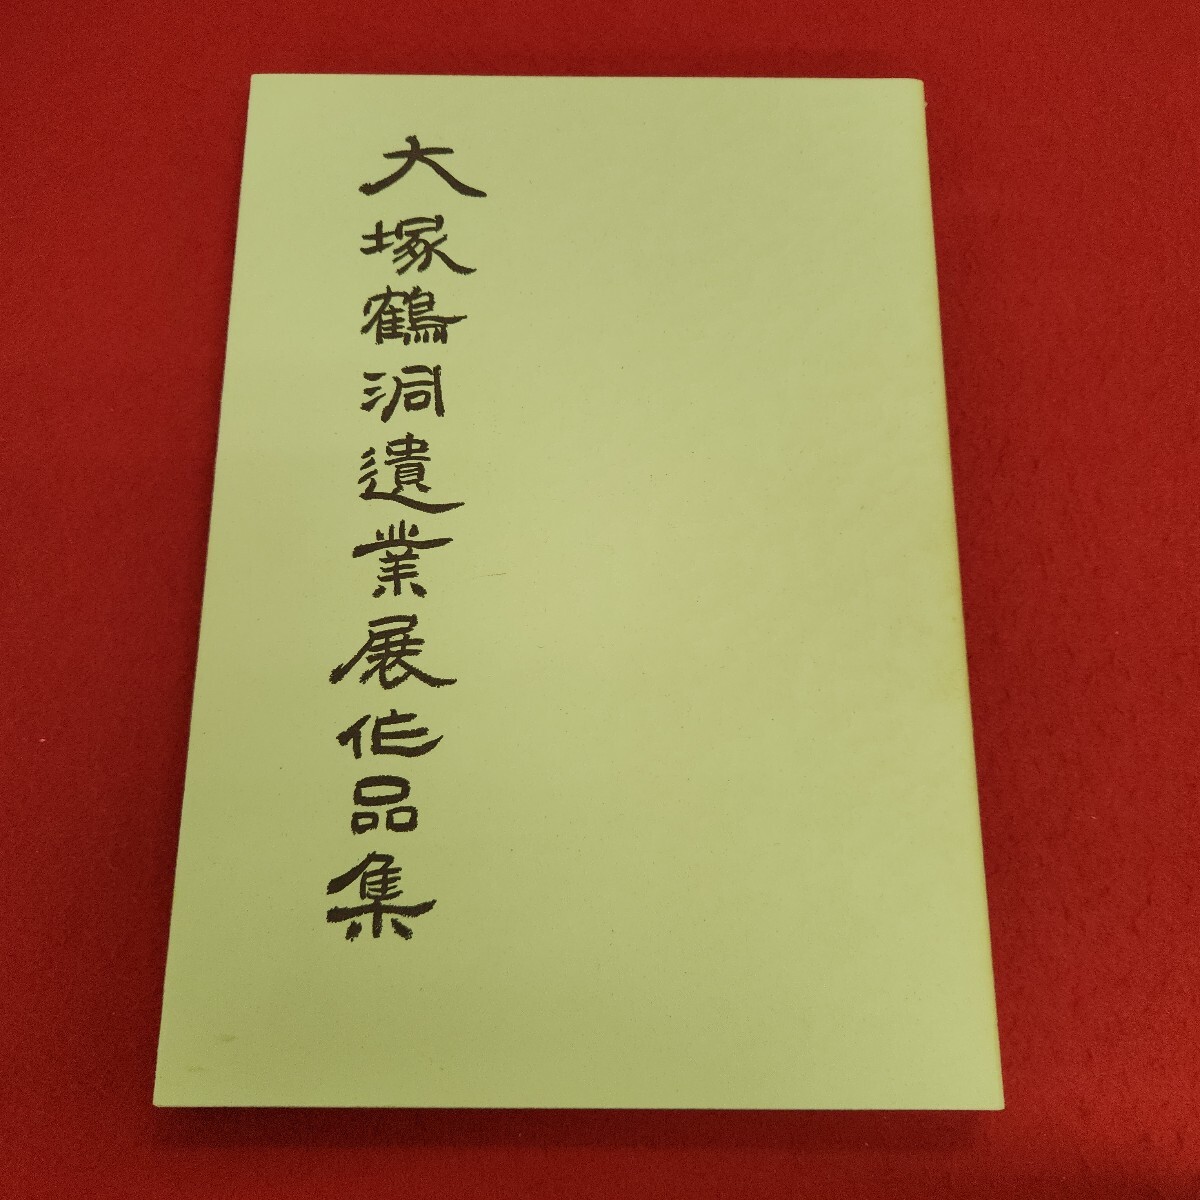 大塚鶴洞遺業展作品集